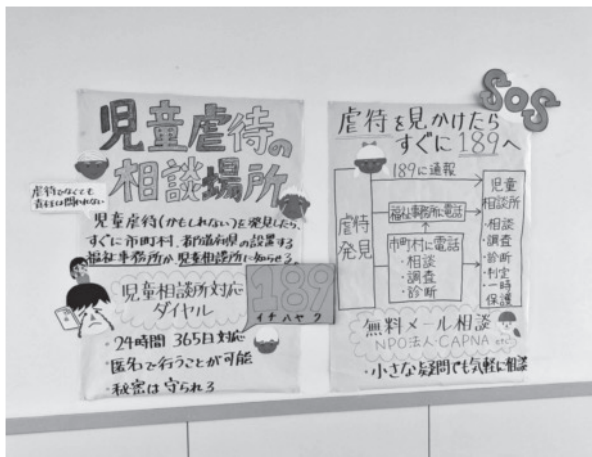 児童虐待の
相談場所
虐待でなくても
責任は問われない
児童虐待(かもしれない)を発見したら、
すぐに市町村、都道府県の設置する
福祉事務所か児童相談所に知らせる。
児童相談所対応
ダイヤル
189
イチハヤク
・24時間 365日対応
・匿名で行うことが可能
・秘密は守られる
SOS
虐待を見かけたら
すぐに189へ
189に通報
虐待発見
福祉事務所に電話
市町村に電話
・相談
・調査
・診断
児童
相談所
・相談
・調査
・診断
・判定
・一時
保護
無料メール相談
NPO法人・CAPNA etc
・小さな疑問でも気軽に相談